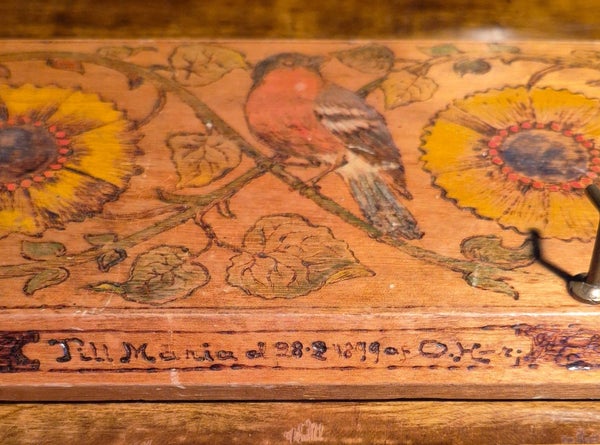 Till Maria d 28·2 1899 af O. H